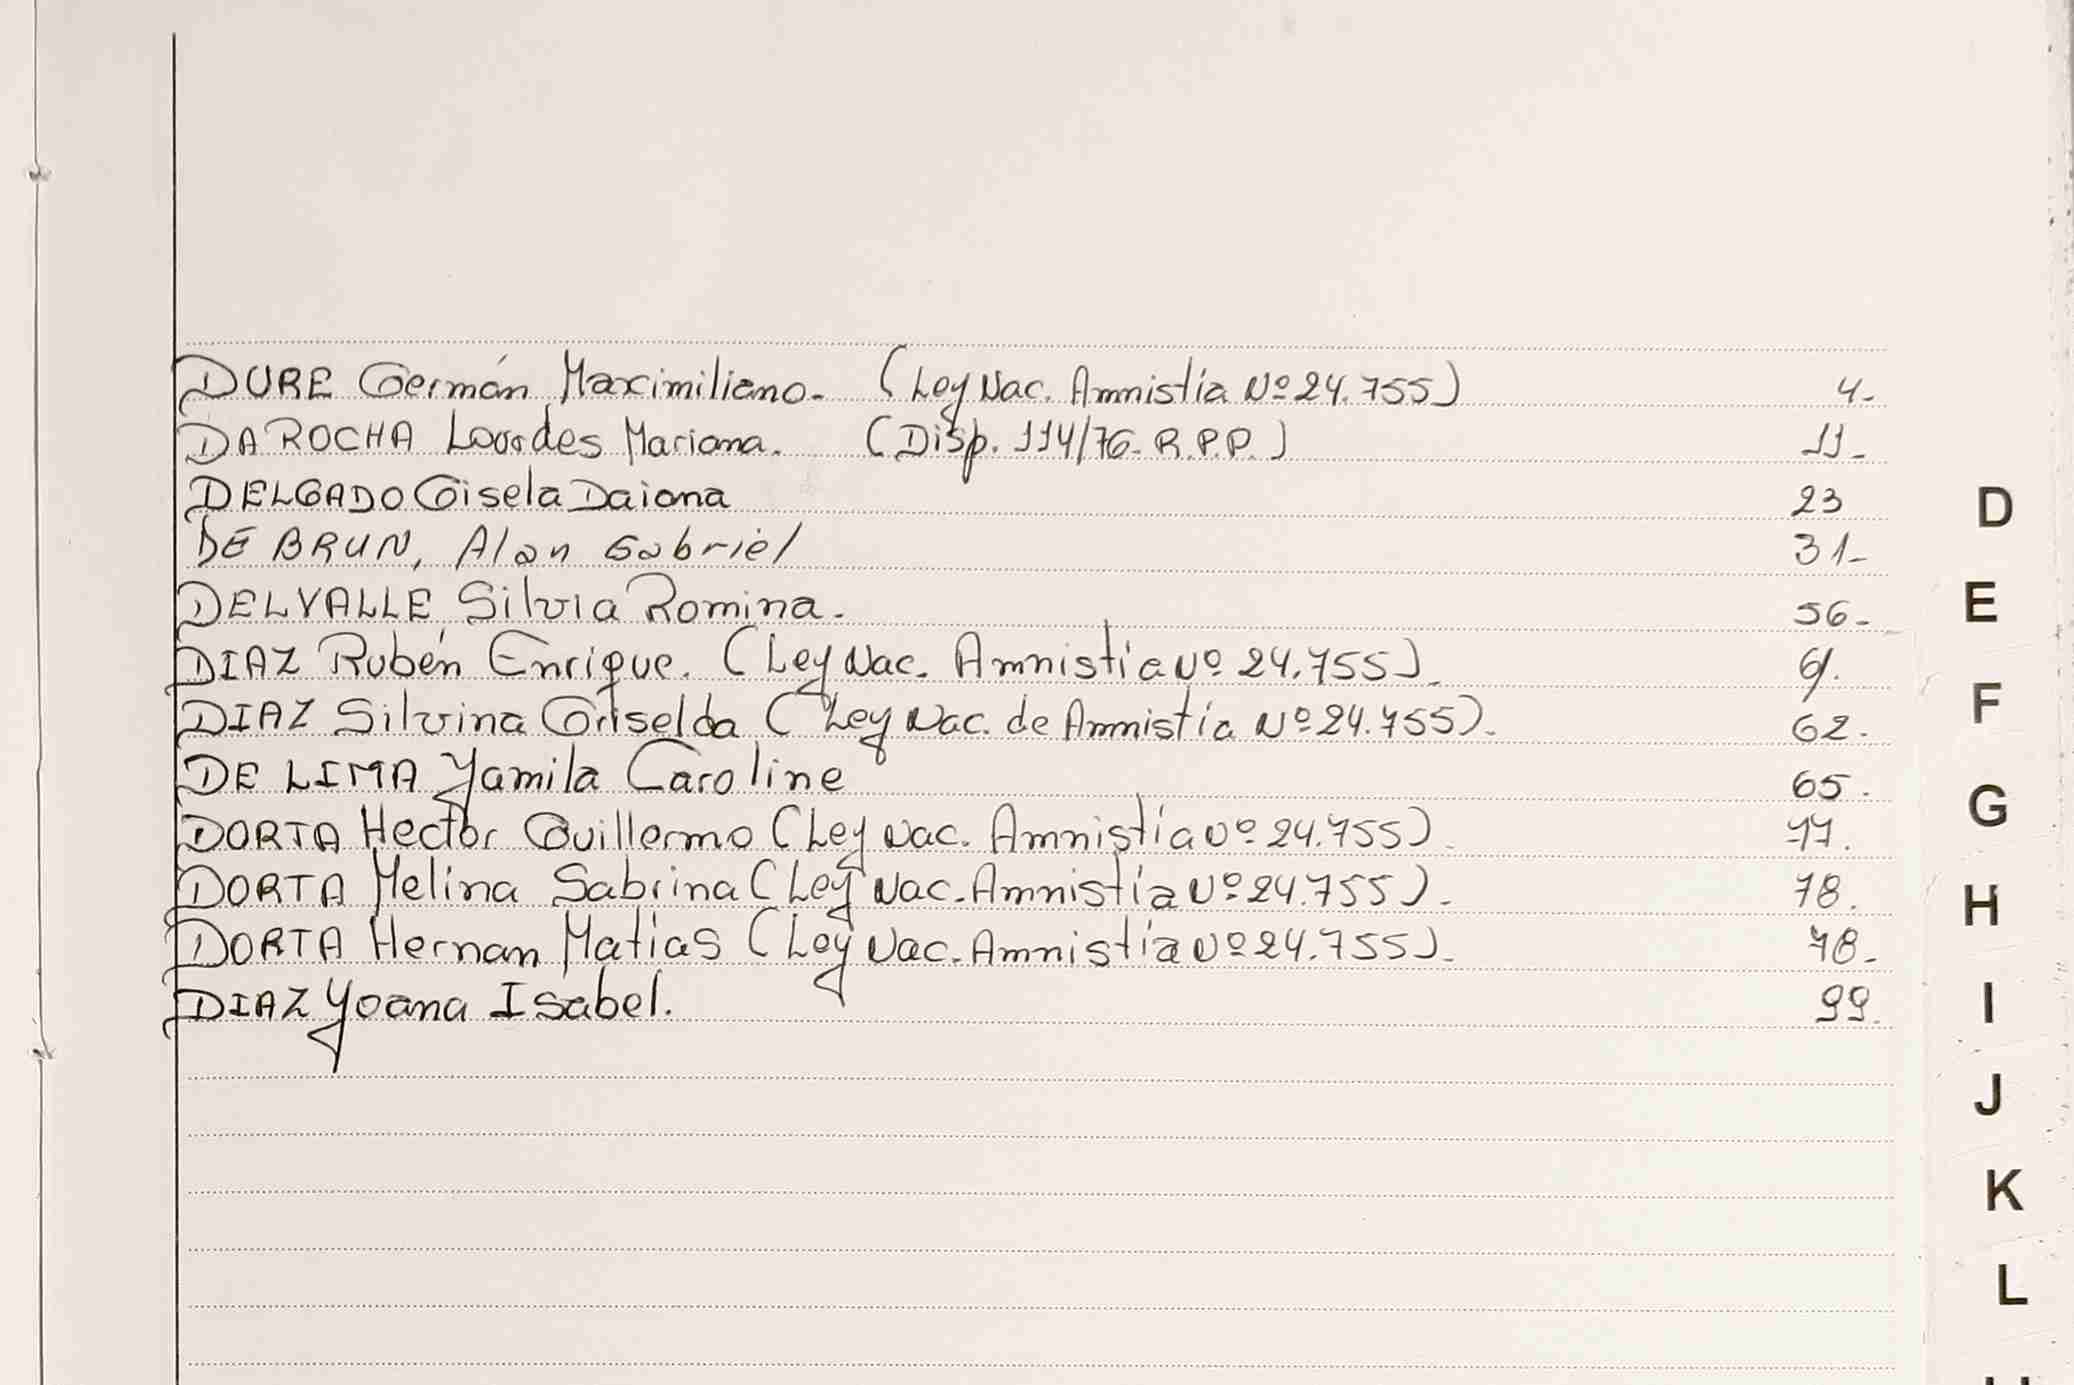 DURE Germán Maximiliano. (Ley Nac. Amnistía Nº 24.755) 4-
DA ROCHA Lourdes Mariana. (Disp. 114/76. R.P.P.) 11-
DELGADO Gisela Daiana 23
DE BRUN, Alan Gabriel 31-
DELVALLE, Silvia Romina. 56-
DIAZ Rubén Enrique. (Ley Nac. Amnistía Nº 24.755). 61.
DIAZ Silvina Griselda (Ley Nac. de Amnistía Nº 24.755). 62.
DE LIMA Yamila Caroline 65.
DORTA Hector Guillermo (Ley Nac. Amnistía Nº 24.755). 77.
DORTA Melina Sabrina (Ley Nac. Amnistía Nº 24.755). 78.
DORTA Hernan Matias (Ley Nac. Amnistía Nº 24.755). 78.
DIAZ Yoana Isabel. 99.
D
E
F
G
H
I
J
K
L